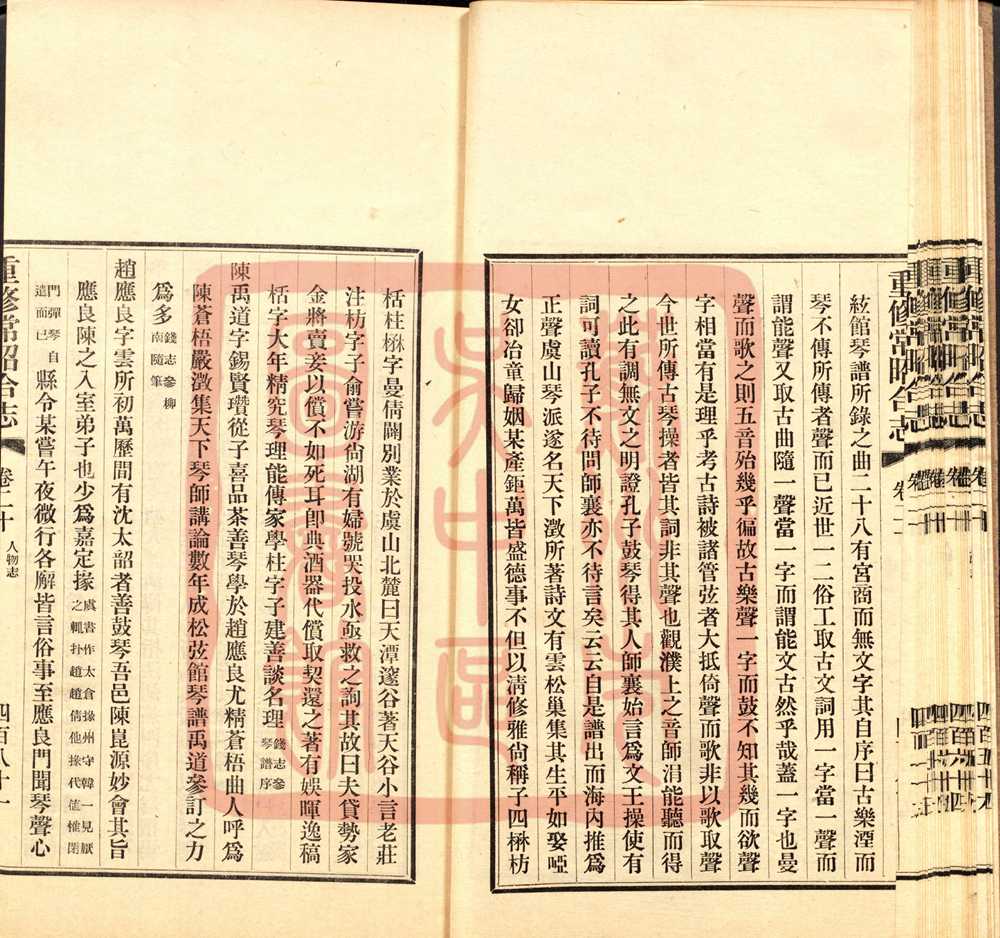 重修常昭合志
絃館琴譜所錄之曲二十八有宮商而無文字其自序曰古樂湮而
琴不傳所傳者聲而已近世一二俗工取古文詞用一字當一聲而
謂能聲又取古曲隨一聲當一字而謂能文古然乎哉蓋一字也曼
聲而歌之則五音殆幾乎徧故古樂聲一字而鼓不知其幾而欲聲
字相當有是理乎考古詩被諸管弦者大抵倚聲而歌非以歌取聲
今世所傳古琴操者皆其詞非其聲也觀濮上之音師涓能聽而得
之此有調無文之明證孔子鼓琴得其人師襄始言為文王操使有
詞可讀孔子不待問師襄亦不待言矣云云自是譜出而海內推為
正聲虞山琴派遂名天下澂所著詩文有雲松巢集其生平如娶啞
女卻冶童歸姻某產鉅萬皆盛德事不但以清修雅尙稱子四楙枋
栝柱楙字曼倩闢別業於虞山北麓曰天潭邃谷著天谷小言老莊
注枋字子俞嘗游尙湖有婦號哭投水亟救之詢其故曰夫貸勢家
金將賣妾以償不如死耳卽典酒器代償取契還之著有娛暉逸稿
栝字大年精究琴理能傳家學柱字子建善談名理錢志參琴譜序
陳禹道字錫賢瓚從子喜品茶善琴學於趙應良尤精蒼梧曲人呼為
陳蒼梧嚴澂集天下琴師講論數年成松弦館琴譜禹道參訂之力
爲多錢志參柳南隨筆
趙應良字雲所初萬歷間有沈太韶者善鼓琴吾邑陳崑源妙會其旨
應良陳之入室弟子也少爲嘉定掾虞書作太倉掾州守韓一見厭之輒扑趙趙倩他掾代値惟閉
門彈琴自遣而已縣令某嘗午夜微行各廨皆言俗事至應良門聞琴聲心
重修常昭合志
卷二十
人物志
四百八十一